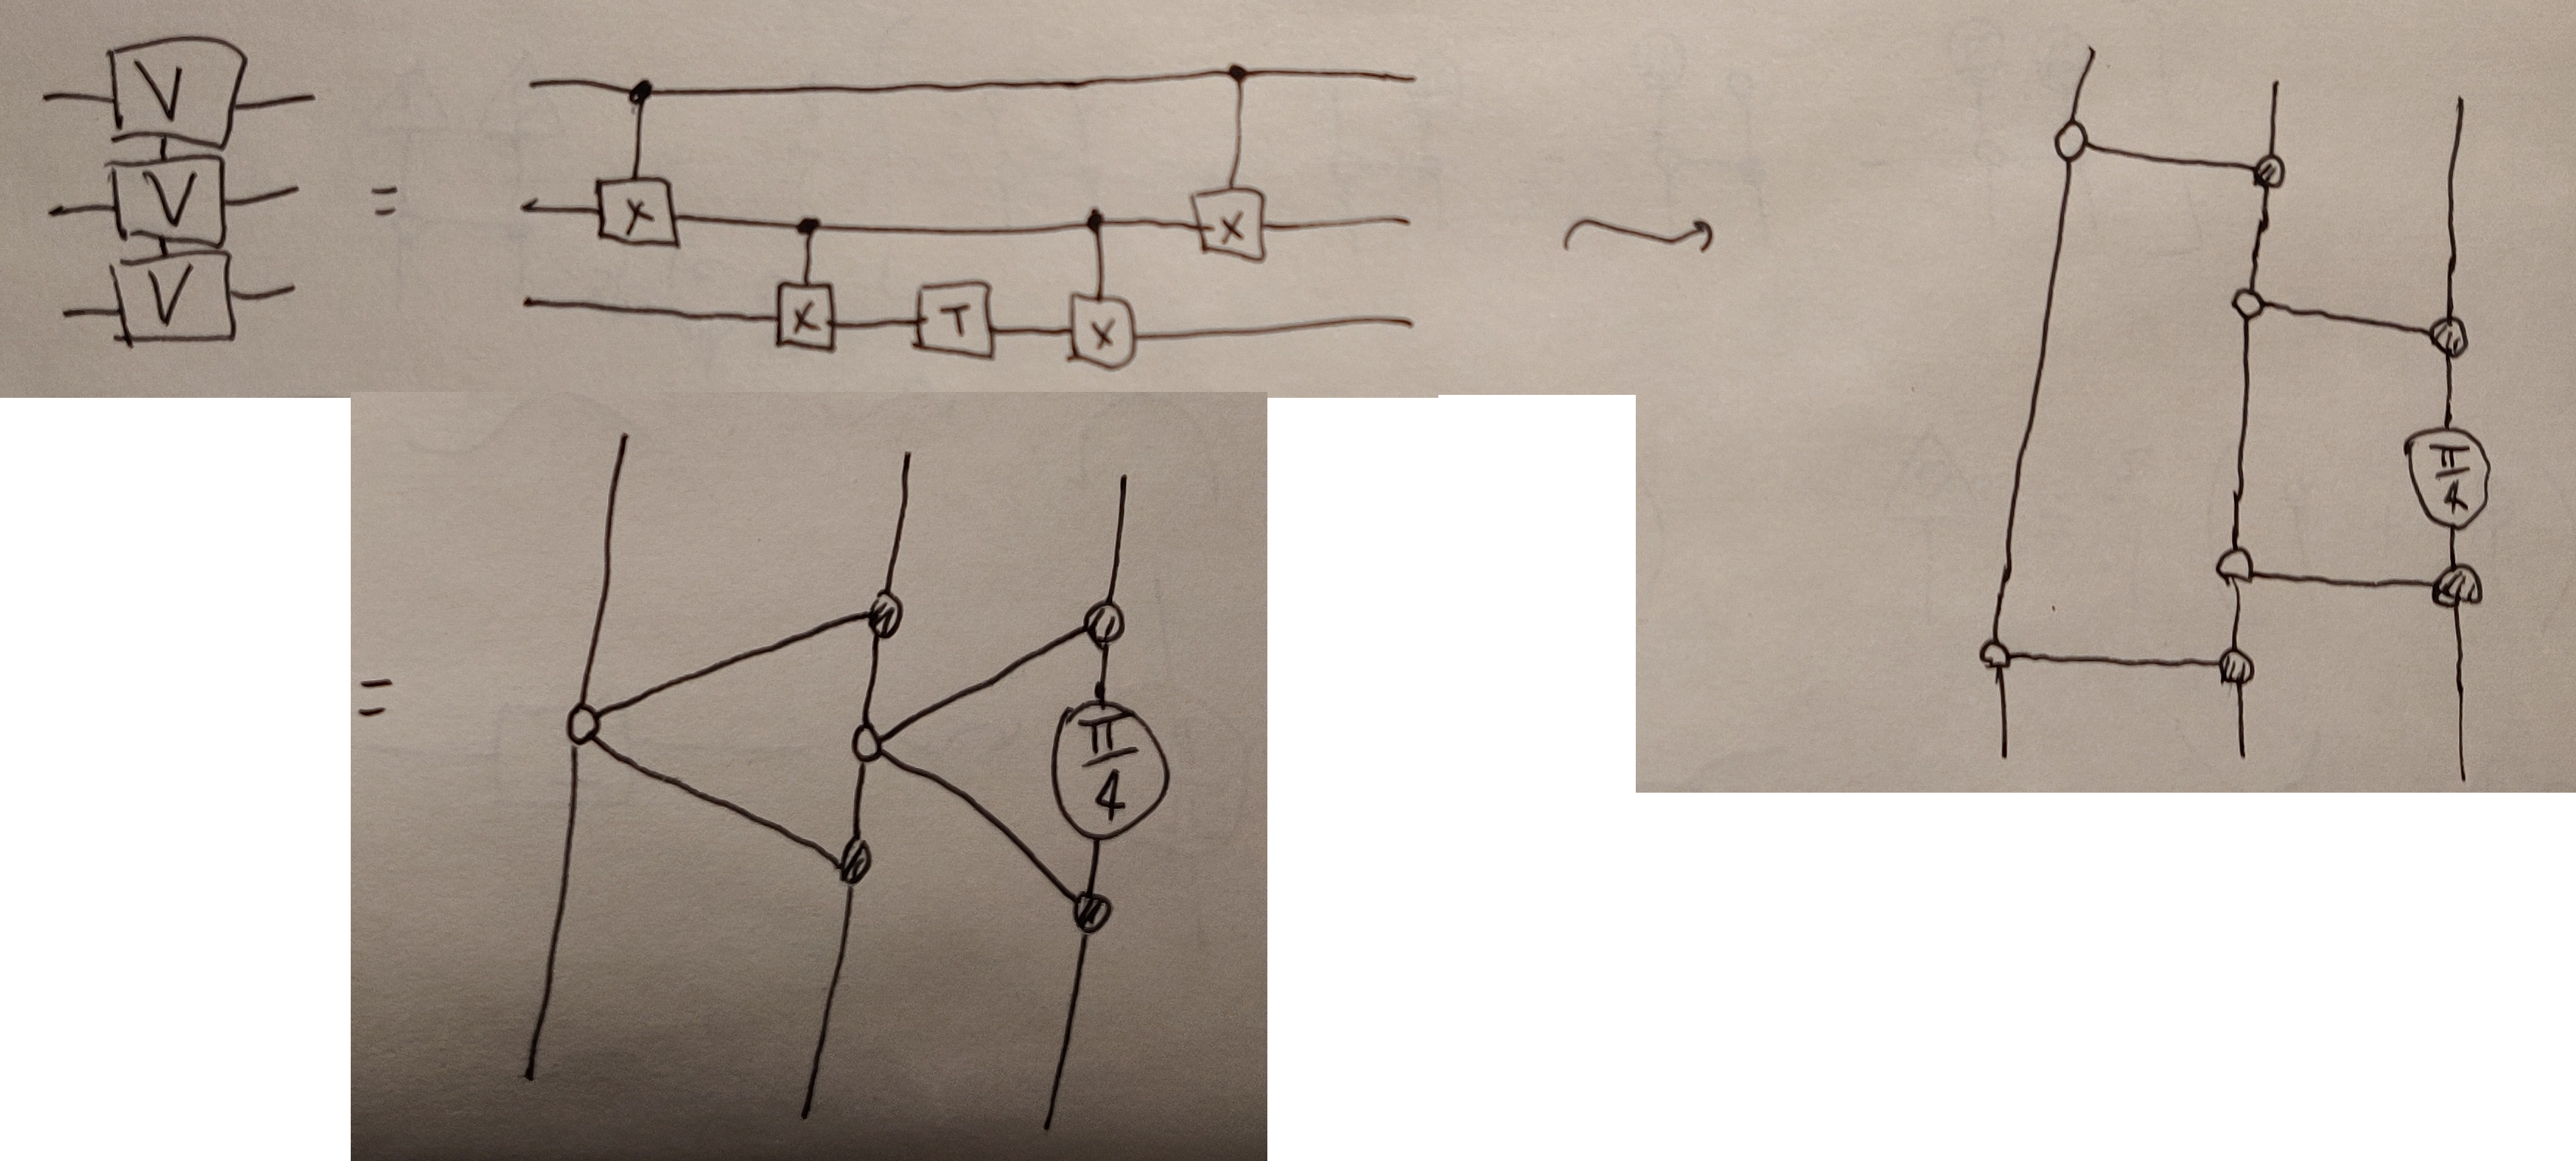 V
V
V
=
X
X
X
T
X
π/4
=
π/4